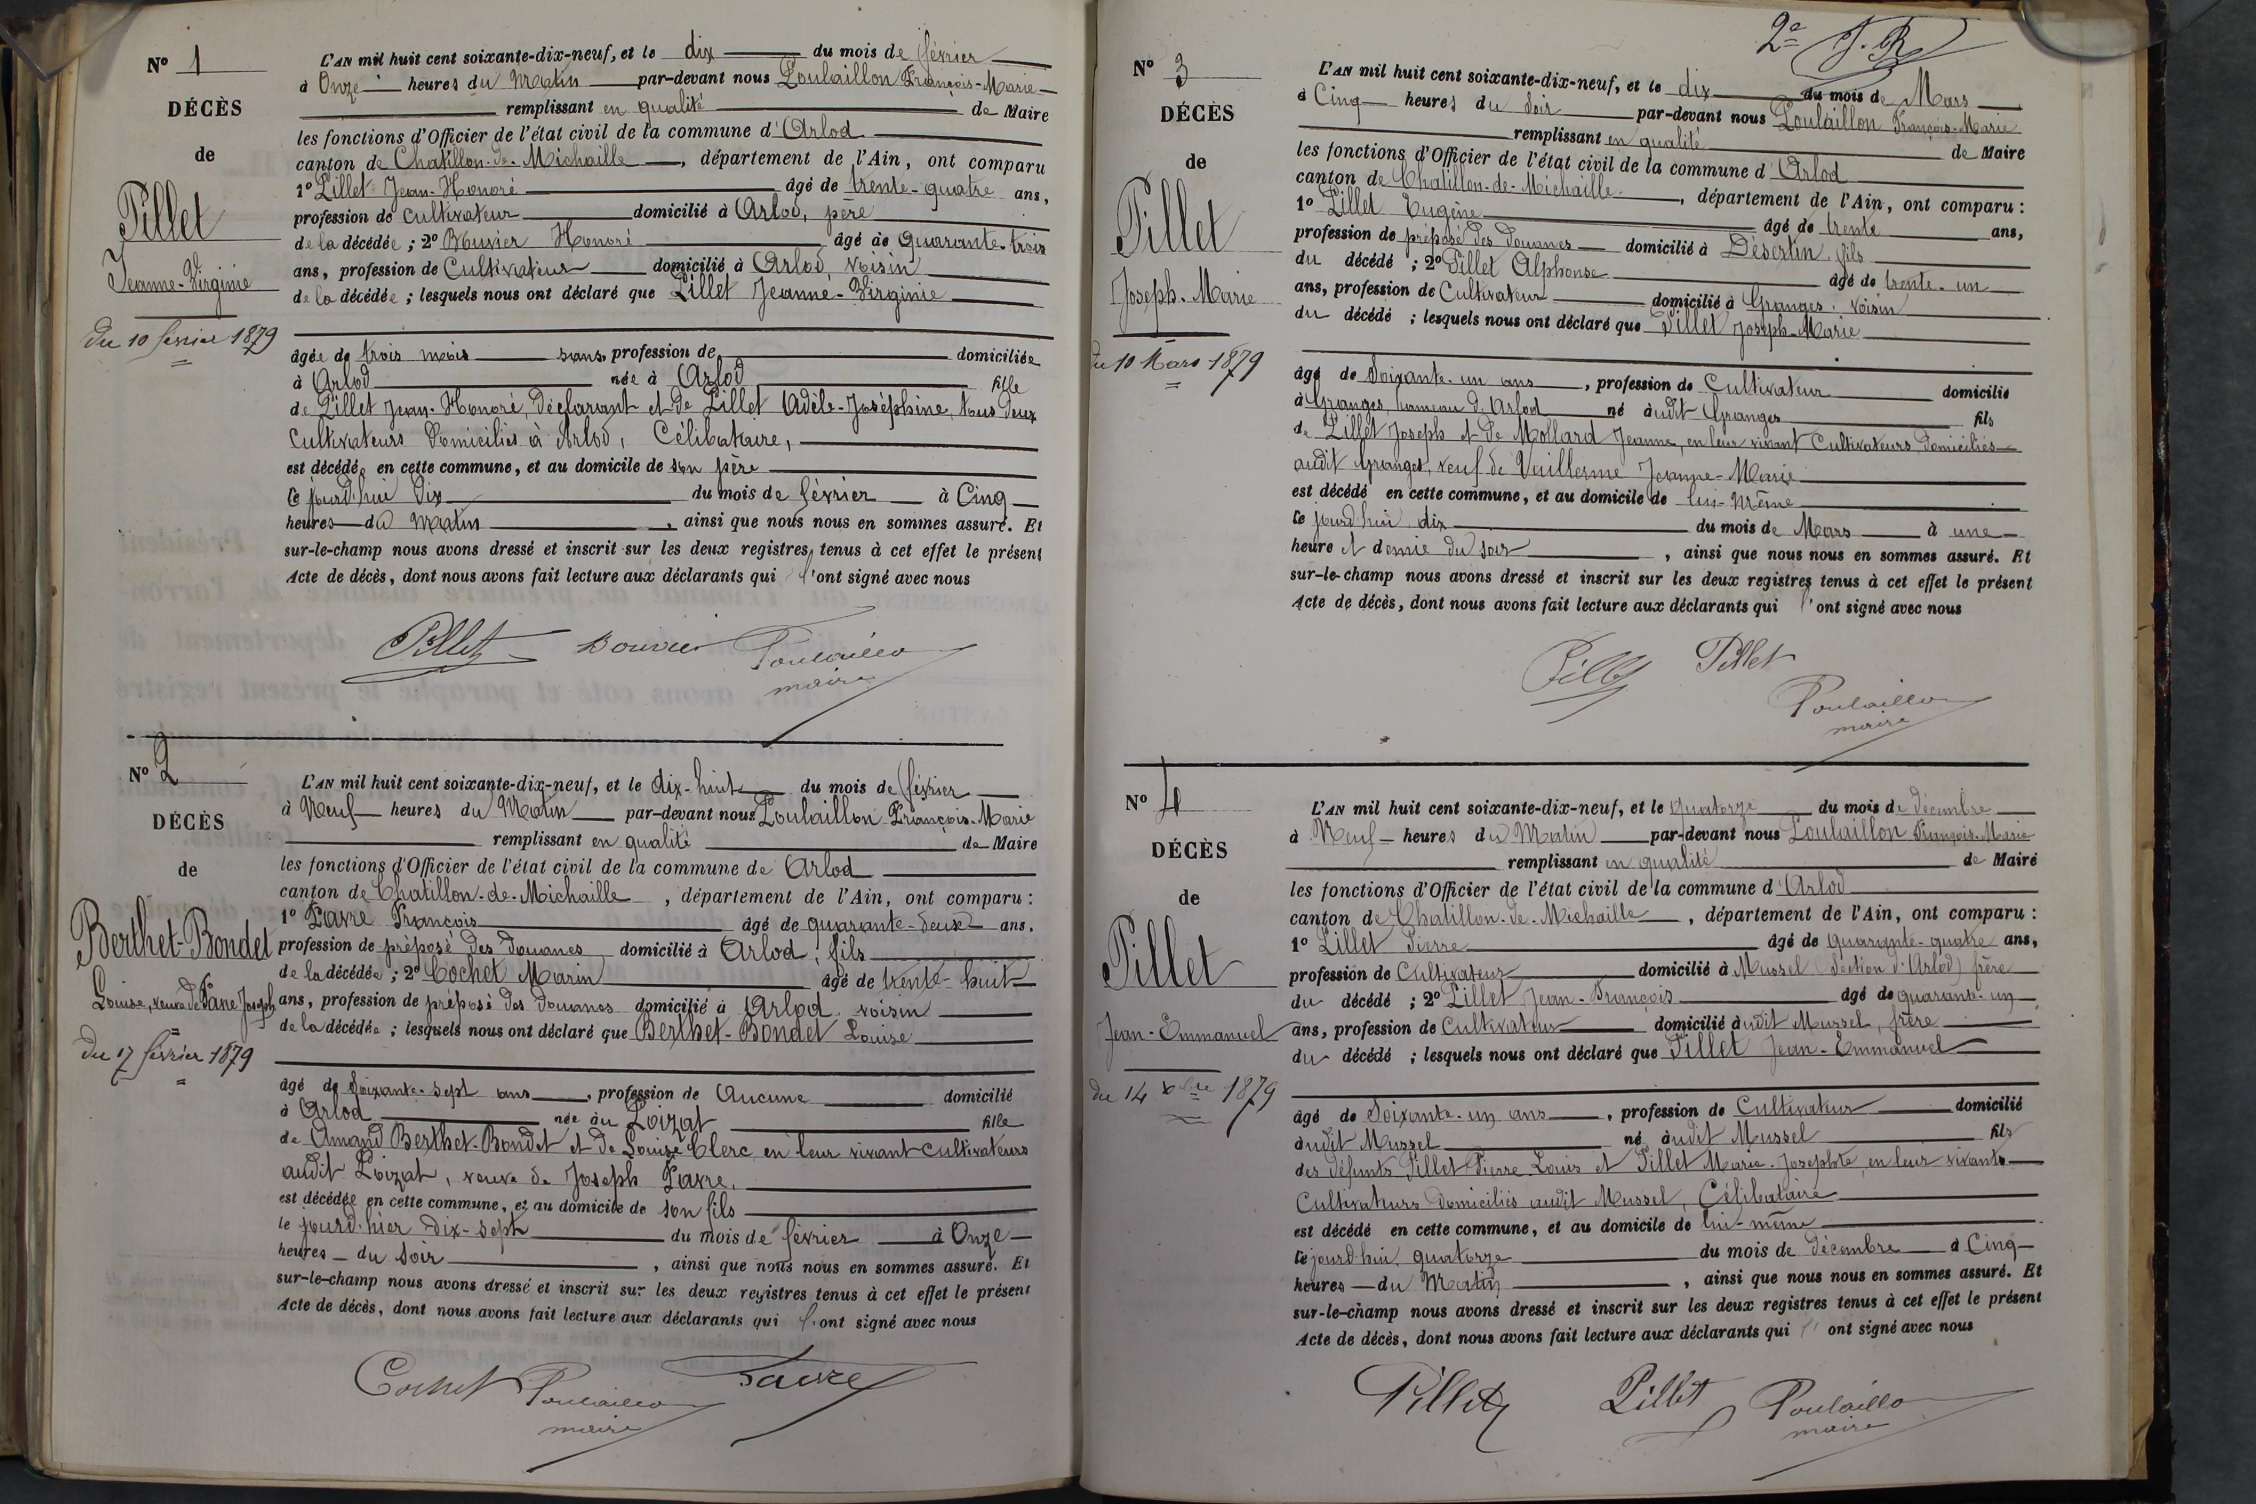 N° 1
DÉCÈS
de
Pillet
Jeanne-Virginie
Du 10 février 1879
L'AN mil huit cent soixante-dix-neuf, et le dix du mois de février
à Onze heures du Matin par-devant nous Poulaillon François-Marie
remplissant en qualité de Maire
les fonctions d'Officier de l'état civil de la commune d'Arlod
canton de Chatillon-de-Michaille, département de l'Ain, ont comparu
1° Pillet Jean-Honoré âgé de trente-quatre ans,
profession de cultivateur domicilié à Arlod, père
de la décédée ; 2° Bouvier Honoré âgé de quarante-trois
ans, profession de Cultivateur domicilié à Arlod, voisin
de la décédée ; lesquels nous ont déclaré que Pillet Jeanne-Virginie
âgée de trois mois sans profession de domiciliée
à Arlod née à Arlod fille
de Pillet Jean-Honoré, Déclarant et de Pillet Adèle-Joséphine, tous deux
Cultivateurs Domiciliés à Arlod, Célibataire,
est décédée en cette commune, et au domicile de son père
Ce jourd'hui Dix du mois de février à Cinq
heures du Matin, ainsi que nous nous en sommes assuré. Et
sur-le-champ nous avons dressé et inscrit sur les deux registres tenus à cet effet le présent
Acte de décès, dont nous avons fait lecture aux déclarants qui l'ont signé avec nous
Pillet Bouvier Poulaillon
maire
N° 2
DÉCÈS
de
Berthet-Bondet
Louise, veuve de Pavre Joseph
Du 17 février 1879
L'AN mil huit cent soixante-dix-neuf, et le dix-huit du mois de février
à Neuf heures du Matin par-devant nous Poulaillon François-Marie
remplissant en qualité de Maire
les fonctions d'Officier de l'état civil de la commune de Arlod
canton de Chatillon-de-Michaille, département de l'Ain, ont comparu :
1° Pavre François âgé de quarante-deux ans.
profession de préposé des Douanes domicilié à Arlod, fils
de la décédée ; 2° Cochet Marin âgé de trente-huit
ans, profession de préposé des Douanes domicilié à Arlod voisin
de la décédée ; lesquels nous ont déclaré que Berthet-Bondet Louise
âgé de Soixante-sept ans, profession de Aucune domicilié
à Arlod née au Loizat fille
de Amand Berthet-Bondet et de Louise Clerc en leur vivant cultivateurs
audit Loizat, veuve de Joseph Pavre,
est décédée en cette commune, et au domicile de son fils
le jourd'hier Dix-sept du mois de février à Onze
heures du Soir, ainsi que nous nous en sommes assuré. Et
sur-le-champ nous avons dressé et inscrit sur les deux registres tenus à cet effet le présent
Acte de décès, dont nous avons fait lecture aux déclarants qui l'ont signé avec nous
Cochet Poulaillon Favre
maire
2e
N° 3
DÉCÈS
de
Pillet
Joseph-Marie
Du 10 Mars 1879
L'AN mil huit cent soixante-dix-neuf, et le dix du mois de Mars
à Cinq heures du Soir par-devant nous Poulaillon François-Marie
remplissant en qualité de Maire
les fonctions d'Officier de l'état civil de la commune d'Arlod
canton de Chatillon-de-Michaille, département de l'Ain, ont comparu :
1° Pillet Eugène âgé de trente ans,
profession de préposé des douanes domicilié à Désertin, fils
du décédé ; 2° Pillet Alphonse âgé de trente-un
ans, profession de Cultivateur domicilié à Granges, voisin
du décédé ; lesquels nous ont déclaré que Pillet Joseph-Marie
âgé de Soixante-un ans, profession de Cultivateur domicilié
à Granges, hameau d'Arlod né audit Granges fils
de Pillet Joseph et de Mollard Jeanne, en leur vivant Cultivateurs, domiciliés
audit Granges, veuf de Vuillerme Jeanne-Marie
est décédé en cette commune, et au domicile de lui-même
Ce jourd'hui dix du mois de Mars à une
heure et demie du soir, ainsi que nous nous en sommes assuré. Et
sur-le-champ nous avons dressé et inscrit sur les deux registres tenus à cet effet le présent
Acte de décès, dont nous avons fait lecture aux déclarants qui l'ont signé avec nous
Pillet Pillet
Poulaillon
maire
N° 4
DÉCÈS
de
Pillet
Jean-Emmanuel
Du 14 Xbre 1879
L'AN mil huit cent soixante-dix-neuf, et le Quatorze du mois de décembre
à Neuf heures du Matin par-devant nous Poulaillon François-Marie
remplissant en qualité de Maire
les fonctions d'Officier de l'état civil de la commune d'Arlod
canton de Chatillon-de-Michaille, département de l'Ain, ont comparu :
1° Pillet Pierre âgé de quarante-quatre ans,
profession de Cultivateur domicilié à Mussel (Section d'Arlod) frère
du décédé ; 2° Pillet Jean-François âgé de quarante-un
ans, profession de Cultivateur domicilié audit Mussel, frère
du décédé ; lesquels nous ont déclaré que Pillet Jean-Emmanuel
âgé de Soixante-un ans, profession de Cultivateur domicilié
audit Mussel né audit Mussel fils
des défunts Pillet Pierre-Louis et Pillet Marie-Josephte, en leur vivants
Cultivateurs Domiciliés audit Mussel, Célibataire
est décédé en cette commune, et au domicile de lui-même
Ce jourd'hui quatorze du mois de décembre à Cinq
heures du Matin, ainsi que nous nous en sommes assuré. Et
sur-le-champ nous avons dressé et inscrit sur les deux registres tenus à cet effet le présent
Acte de décès, dont nous avons fait lecture aux déclarants qui l'ont signé avec nous
Pillet Pillet Poulaillon
maire